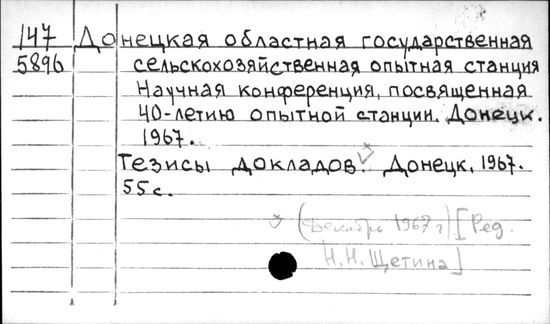 147 Донецкая областная государственная
5896 сельскохозяйственная опытная станция
Научная конференция, посвященная
40-летию опытной станции. Донецк.
1967.
Тезисы докладов. Донецк, 1967.
55 с.
(декабрь 1967 г) [Ред.
Н.Н. Щетина]